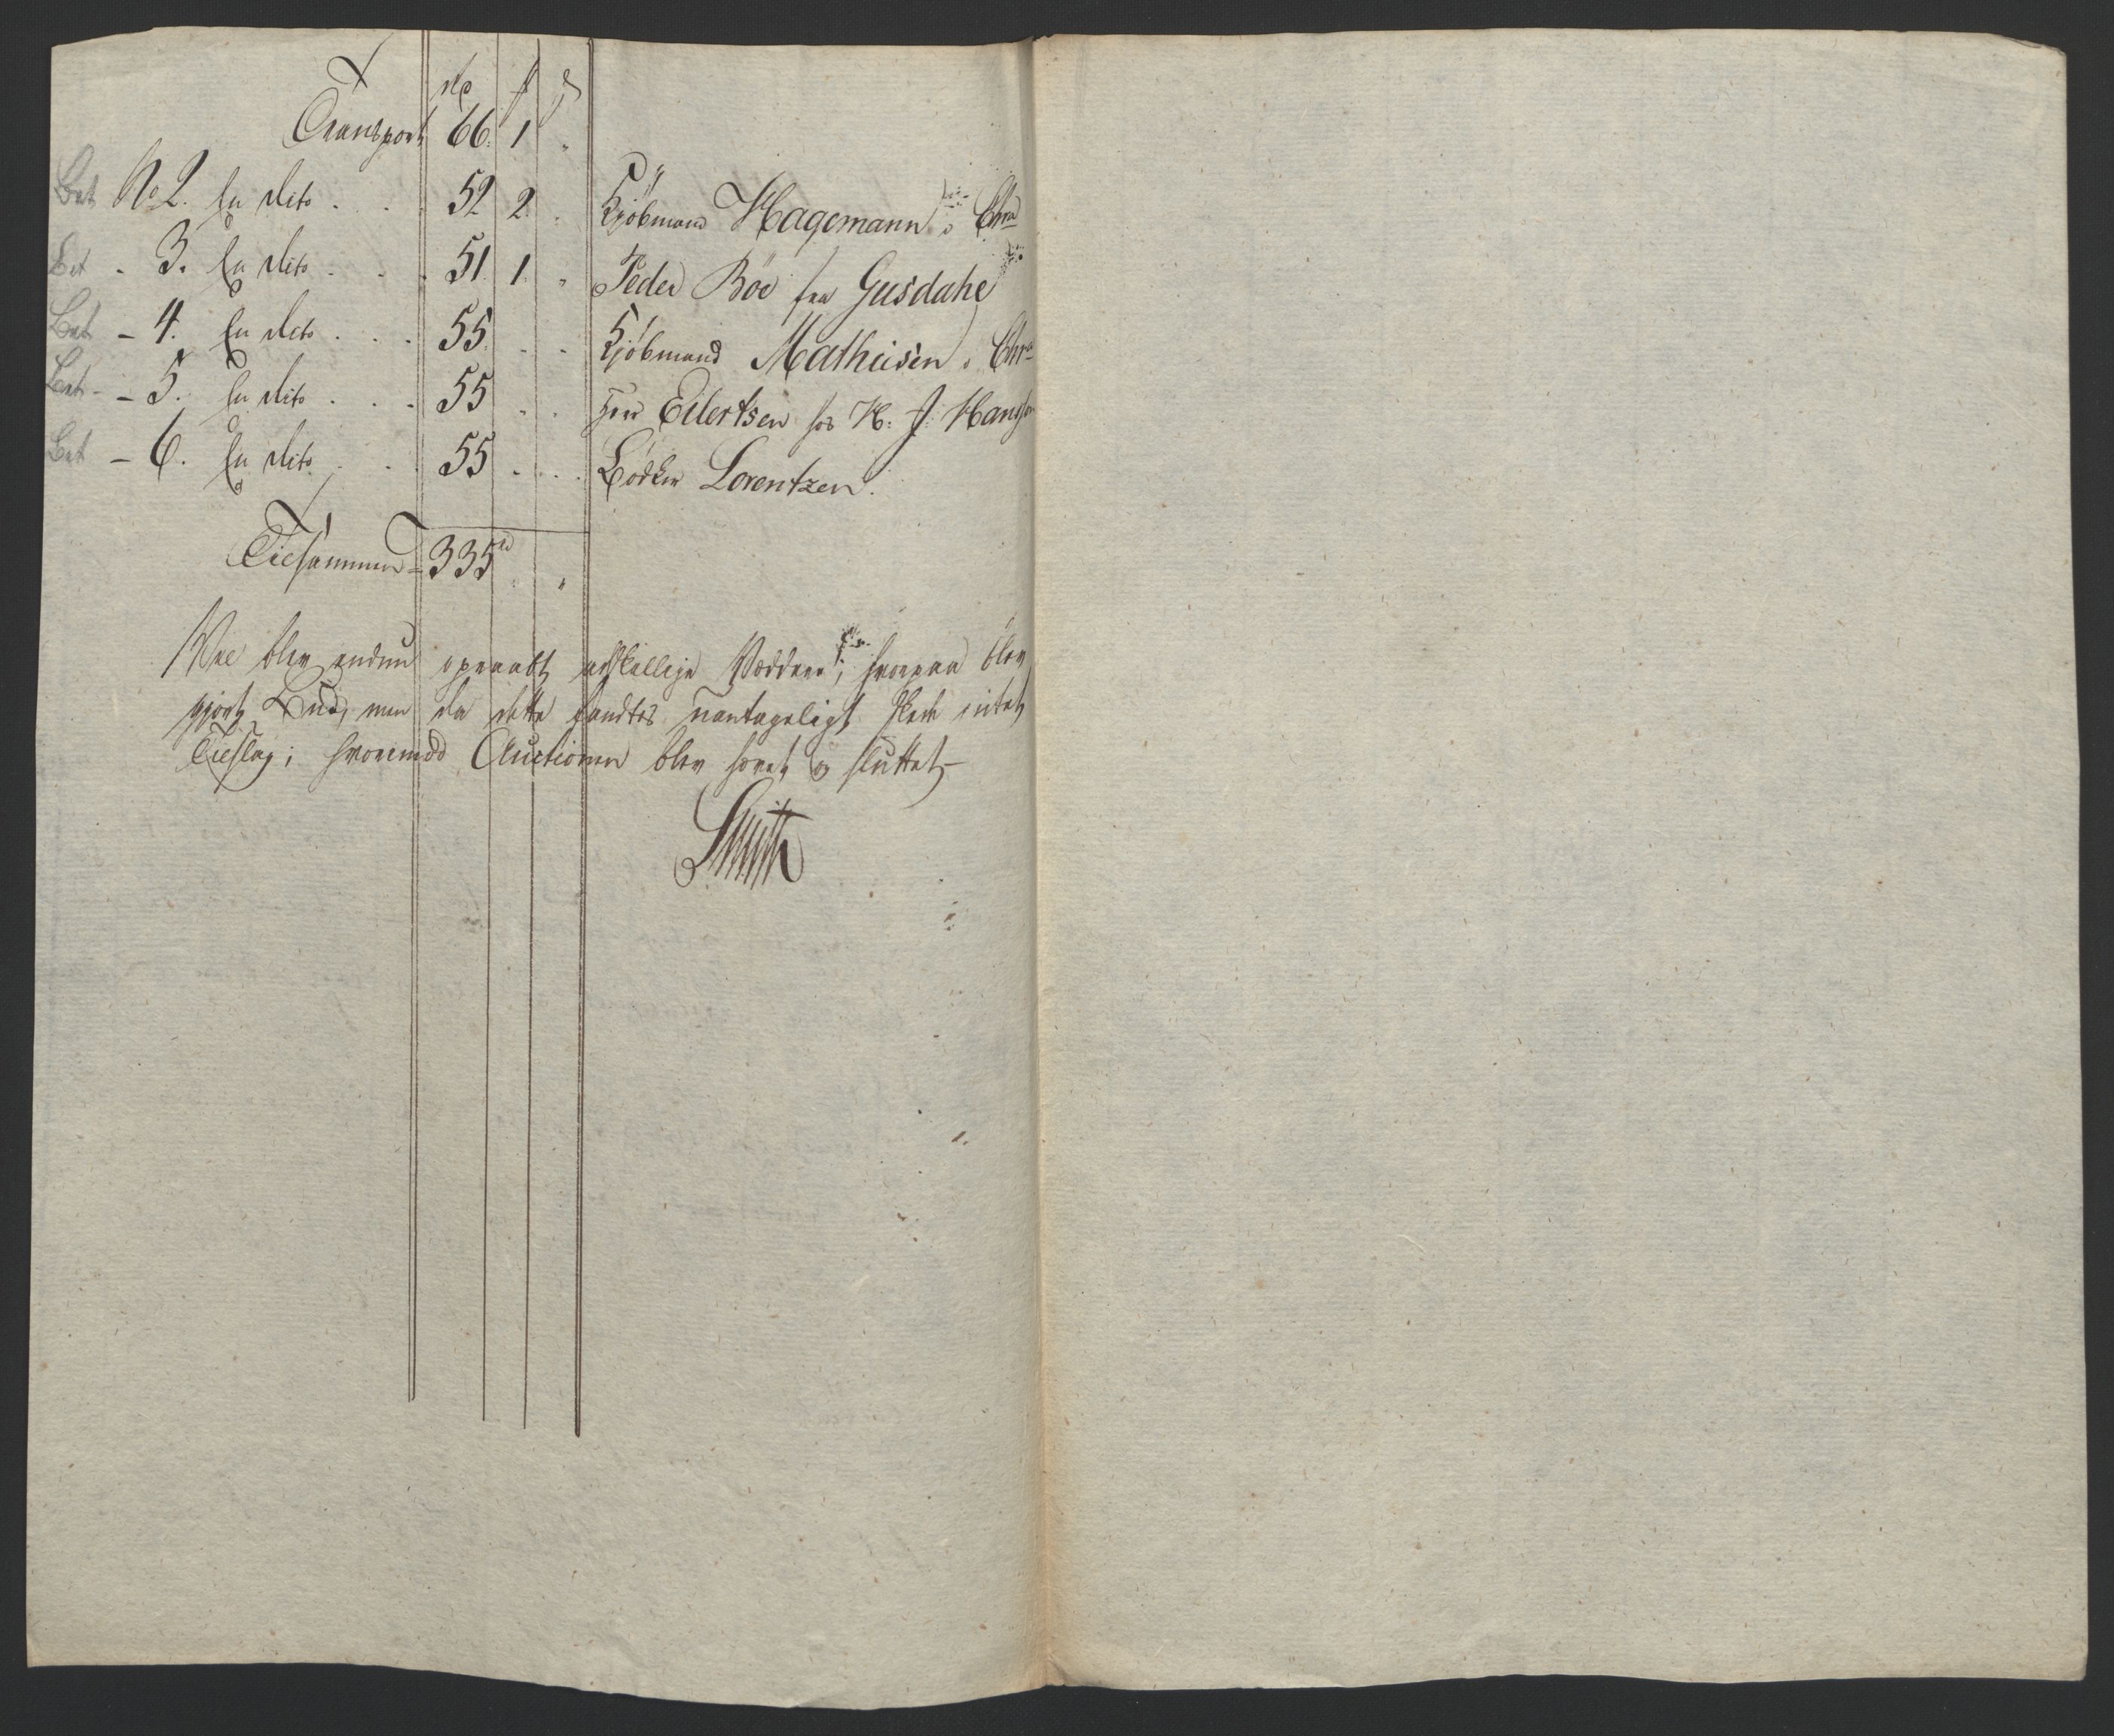 Transport 66. 1 "
Bet No 2. En dito . . . 52 2. . Kjøbmand Hagemann i Chra
Bet - 3. En dito . . . 51. 1. " Peder Böe fra Gusdahl
Bet - 4. En dito . . . 55. . . Kjøbmand Mathiesen i Chra
Bet - 5. En dito . . . 55 . . Herr Eilertsen hos H: J: Hansen
Bet - 6. En dito . . . 55 . . . Bödker Lorentzen.
Tilsammen = 335 . "
blev endnu opraabt adskillige Væddere; hvorpaa blev
gjort Bud, men da dette fandtes uantageligt skede intet
Tilslag; hvormed Auctionen blev hævet og sluttet -
Smith